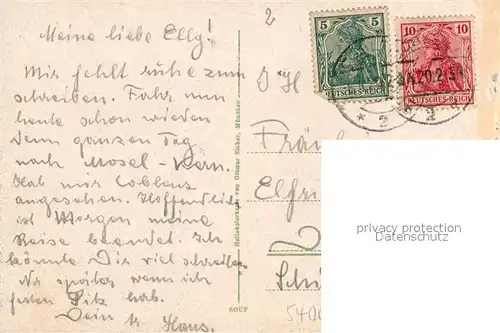 Meine liebe Elly!
Mir fehlt ruhe zum
schreiben. Fahr nun
heute schon wieder
den ganzen Tag
nach Mosel-Kern.
Hab mir Coblenz
angesehen. Hoffendlich
ist Morgen meine
Reise beendet. Ich
könnte Dir viel schreiben
später wenn ich
festen Sitz hab.
Dein Hans.
2
5
DEUTSCHES REICH
10
DEUTSCHES REICH
2
2
Elfri
SOUF
privacy protection
Datenschutz